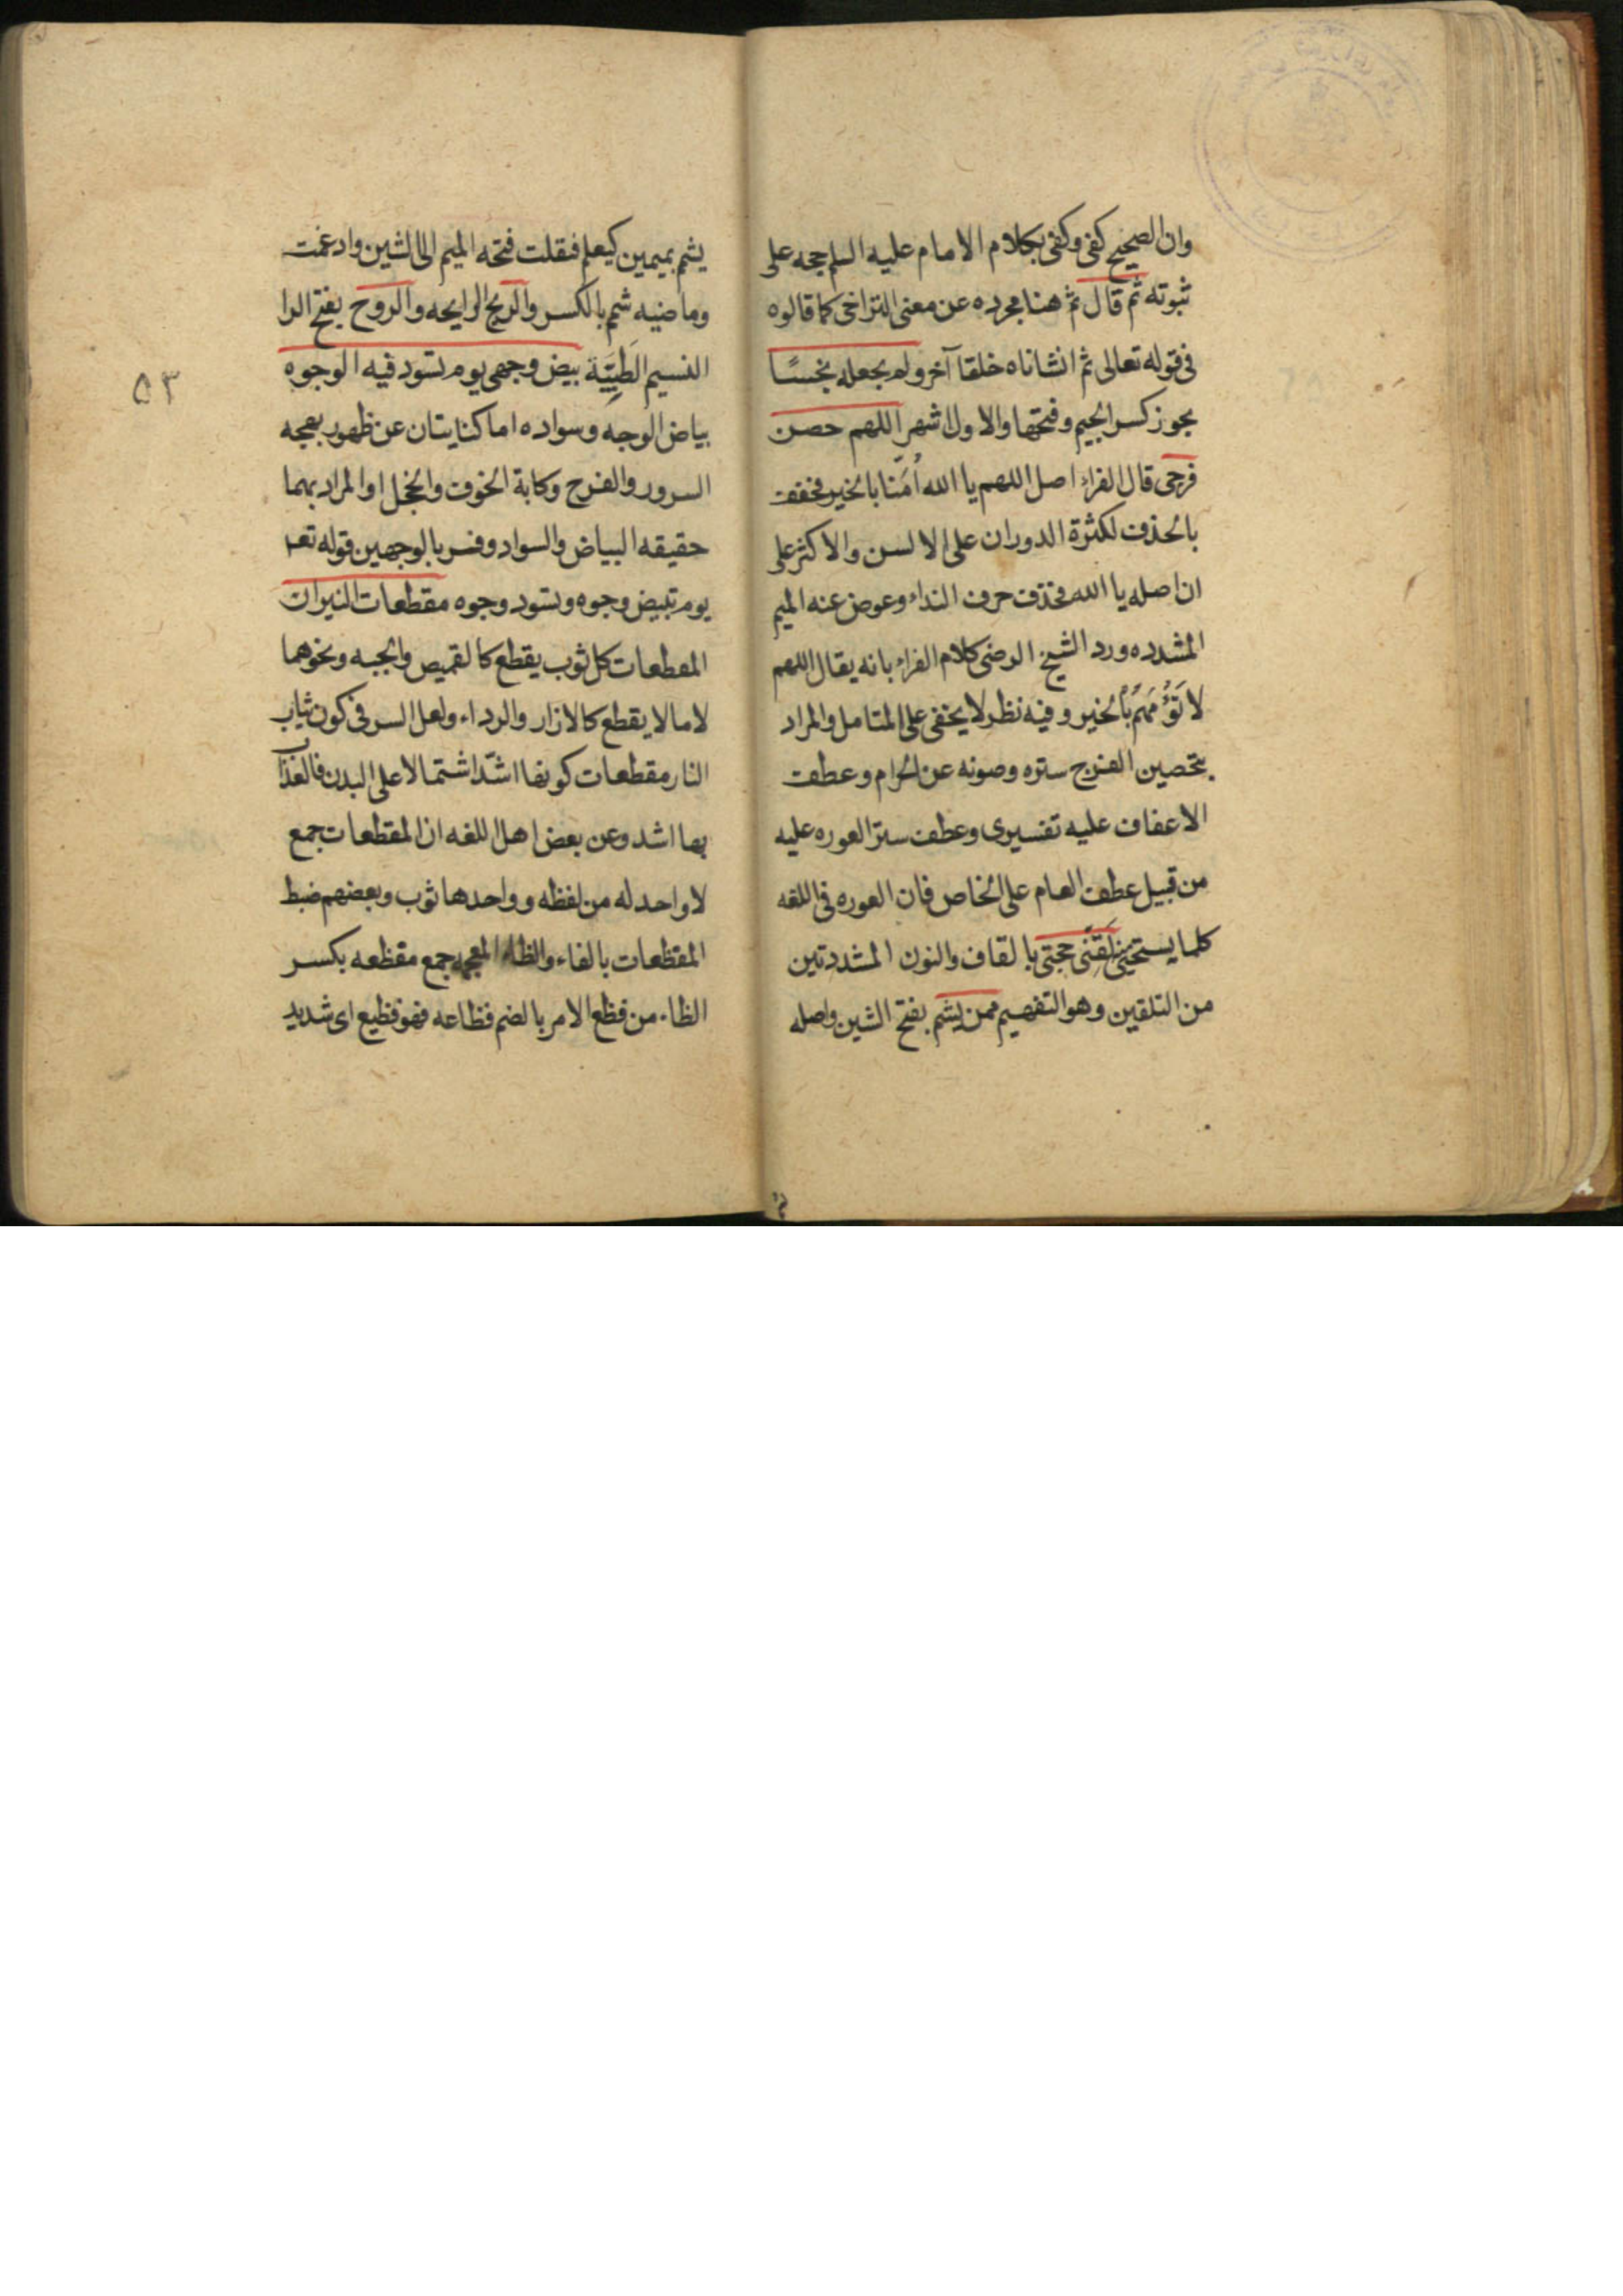 وان الصحيح كفى وكفى بكلام الامام عليه السلم حجه على
ثبوته ثم قال ثم هنا مجرده عن معنى التراخى كما قالوه
فى قوله تعالى ثم انشاناه خلقا آخر ولم يجعله نجسًا
يجوز كسر الجيم وفتحها والاول اشهر اللهم حصن
فرجى قال الفراء اصل اللهم يا الله اُمَّنا بالخير فخفف
بالحذف لكثرة الدوران على الالسن والاكثر على
ان اصله يا الله فحذف حرف النداء وعوض عنه الميم
المشدده ورد الشيخ الرضى كلام الفراء بانه يقال اللهم
لا تَؤُمَّهُم بالخير وفيه نظر لا يخفى على المتامل والمراد
بتحصين الفرج ستره وصونه عن الحرام وعطف
الاعفاف عليه تفسيرى وعطف ستر العوره عليه
من قبيل عطف العام على الخاص فان العوره فى اللغه
كلما يستحيى منه لَقِّنّى حجتى بالقاف والنون المشددتين
من التلقين وهو التفهيم ممن يشم بفتح الشين واصله
يشم بميمين كيعلم فنقلت فتحه الميم الى الشين وادغمت
وماضيه شم بالكسر والريح الرايحه والروح بفتح الرا
النسيم الطَيِّبَة بيض وجهى يوم تسود فيه الوجوه
بياض الوجه وسواده اما كنايتان عن ظهور بهجه
السرور والفرح وكابة الخوف والخجل او المراد بهما
حقيقه البياض والسواد وفسر بالوجهين قوله تعـ
يوم تبيض وجوه وتسود وجوه مقطعات النيران
المقطعات كل ثوب يقطع كالقميص والجبه ونحوهما
لا ما لا يقطع كالازار والرداء ولعل السر فى كون ثياب
النار مقطعات كونها اشدّ اشتمالا على البدن فالعذاب
بها اشد وعن بعض اهل اللغه ان المقطعات جمع
لا واحد له من لفظه وواحدها ثوب وبعضهم ضبط
المفظعات بالفاء والظاء المعجمه جمع مفظعه بكسر
الظاء من فظع الامر بالضم فظاعه فهو فظيع اى شديد
٥٣